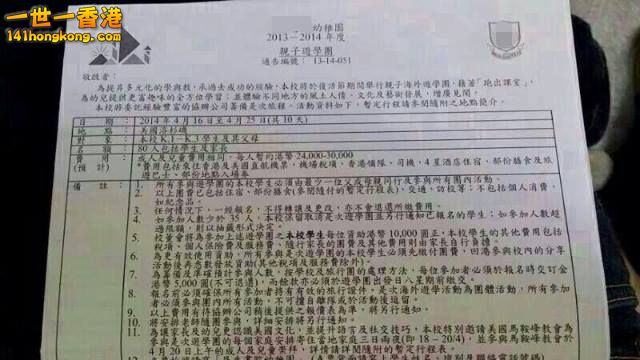 一世一香港
141hongkong.com
幼稚園
2013－2014 年度
親子遊學團
通告編號： 13-14-051
敬啟者：
為提昇多元化的學與教，承過去成功的經驗，本校將於復活節期間舉行親子海外遊學團，藉著「跑出課室」，
為幼兒提供更富趣味的全方位學習；並體驗不同地方的風土人情、文化及藝術發展，增廣見聞。
本校將委託經驗豐富的協辦公司籌備是次旅程。活動資料如下，暫定行程請參閱隨附之地點簡介。
日 期 ： 2014 年 4 月 16 日至 4 月 25 日(共 10 天)
地 點 ： 美國洛杉磯
對 象 ： 本校大上、大下學生及其父母
名 額 ： 80 人包括學生及家長
費 用 ： 成人及兒童費用相同，每人暫約港幣 24,000-30,000
(預計) *費用包括來往香港及美國直航機票、機場稅項、香港領隊、司機、4 星酒店住宿、部份膳食及旅
遊巴士、部份地點入場券
備 註 ： 1. 所有參與遊學團的本校學生必須由最少一位父或母親同行及參與所有團內活動。
2. 以上團費已包括住宿、部份膳食(參閱隨付的暫定行程表)、交通、訪校等；不包括個人消費，
如紀念品。
3. 任何情況下，一經報名，不得轉讓及更改，亦不會退還所繳費用。
4. 如參加人數少於 35 人，本校保留取消是次遊學團並另行通知已報名的學生；如參加人數超
過限額，則以抽籤形式決定。
5. 校董會將為參加上述遊學團之本校學生每位資助港幣 10,000 圓正。本校學生的其他費用包括
稅項、個人保險費及服務費、隨行家長的團費及其他費用則由家長自行負擔。
6. 為更有效使用資助，所有參與是次遊學團的學生必須先繳付團費，回港參與校內的分享
活動後再悉數發還資助(其他稅項及服務費除外)。
7. 為著能準確預計參與人數，按學校及旅行團的處理方法，每位參加者必須於報名時交訂金
港幣 5,000 圓(不可退還)，而餘款亦必須於遊學團出發日八星期前繳交。
8. 報名前必須確保所有參加者持有有效的旅行證件。是次海外遊學活動為團體活動，所有參加
者必須參與團內所有活動，不可擅自離隊或於活動後逗留。
9. 以上費用有待協辦公司稍後提供之報價表為準，將另行通知。
10. 將安排老師隨團參與，詳細安排將另行通知。
11. 為讓家長及幼兒認識美國文化，並提升語言及社交技巧，本校特別邀請美國馬鞍峰教會為
參加遊學團的每個家庭安排寄住當地家庭三日兩夜(即 18－20/4)，並參與馬鞍峰教會於
4 月 20 日上午的成人及兒童聚會。詳情請參閱隨附的暫定行程表。